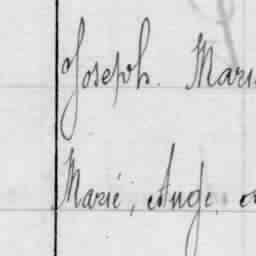 Joseph. Mari
Marie, Ange,